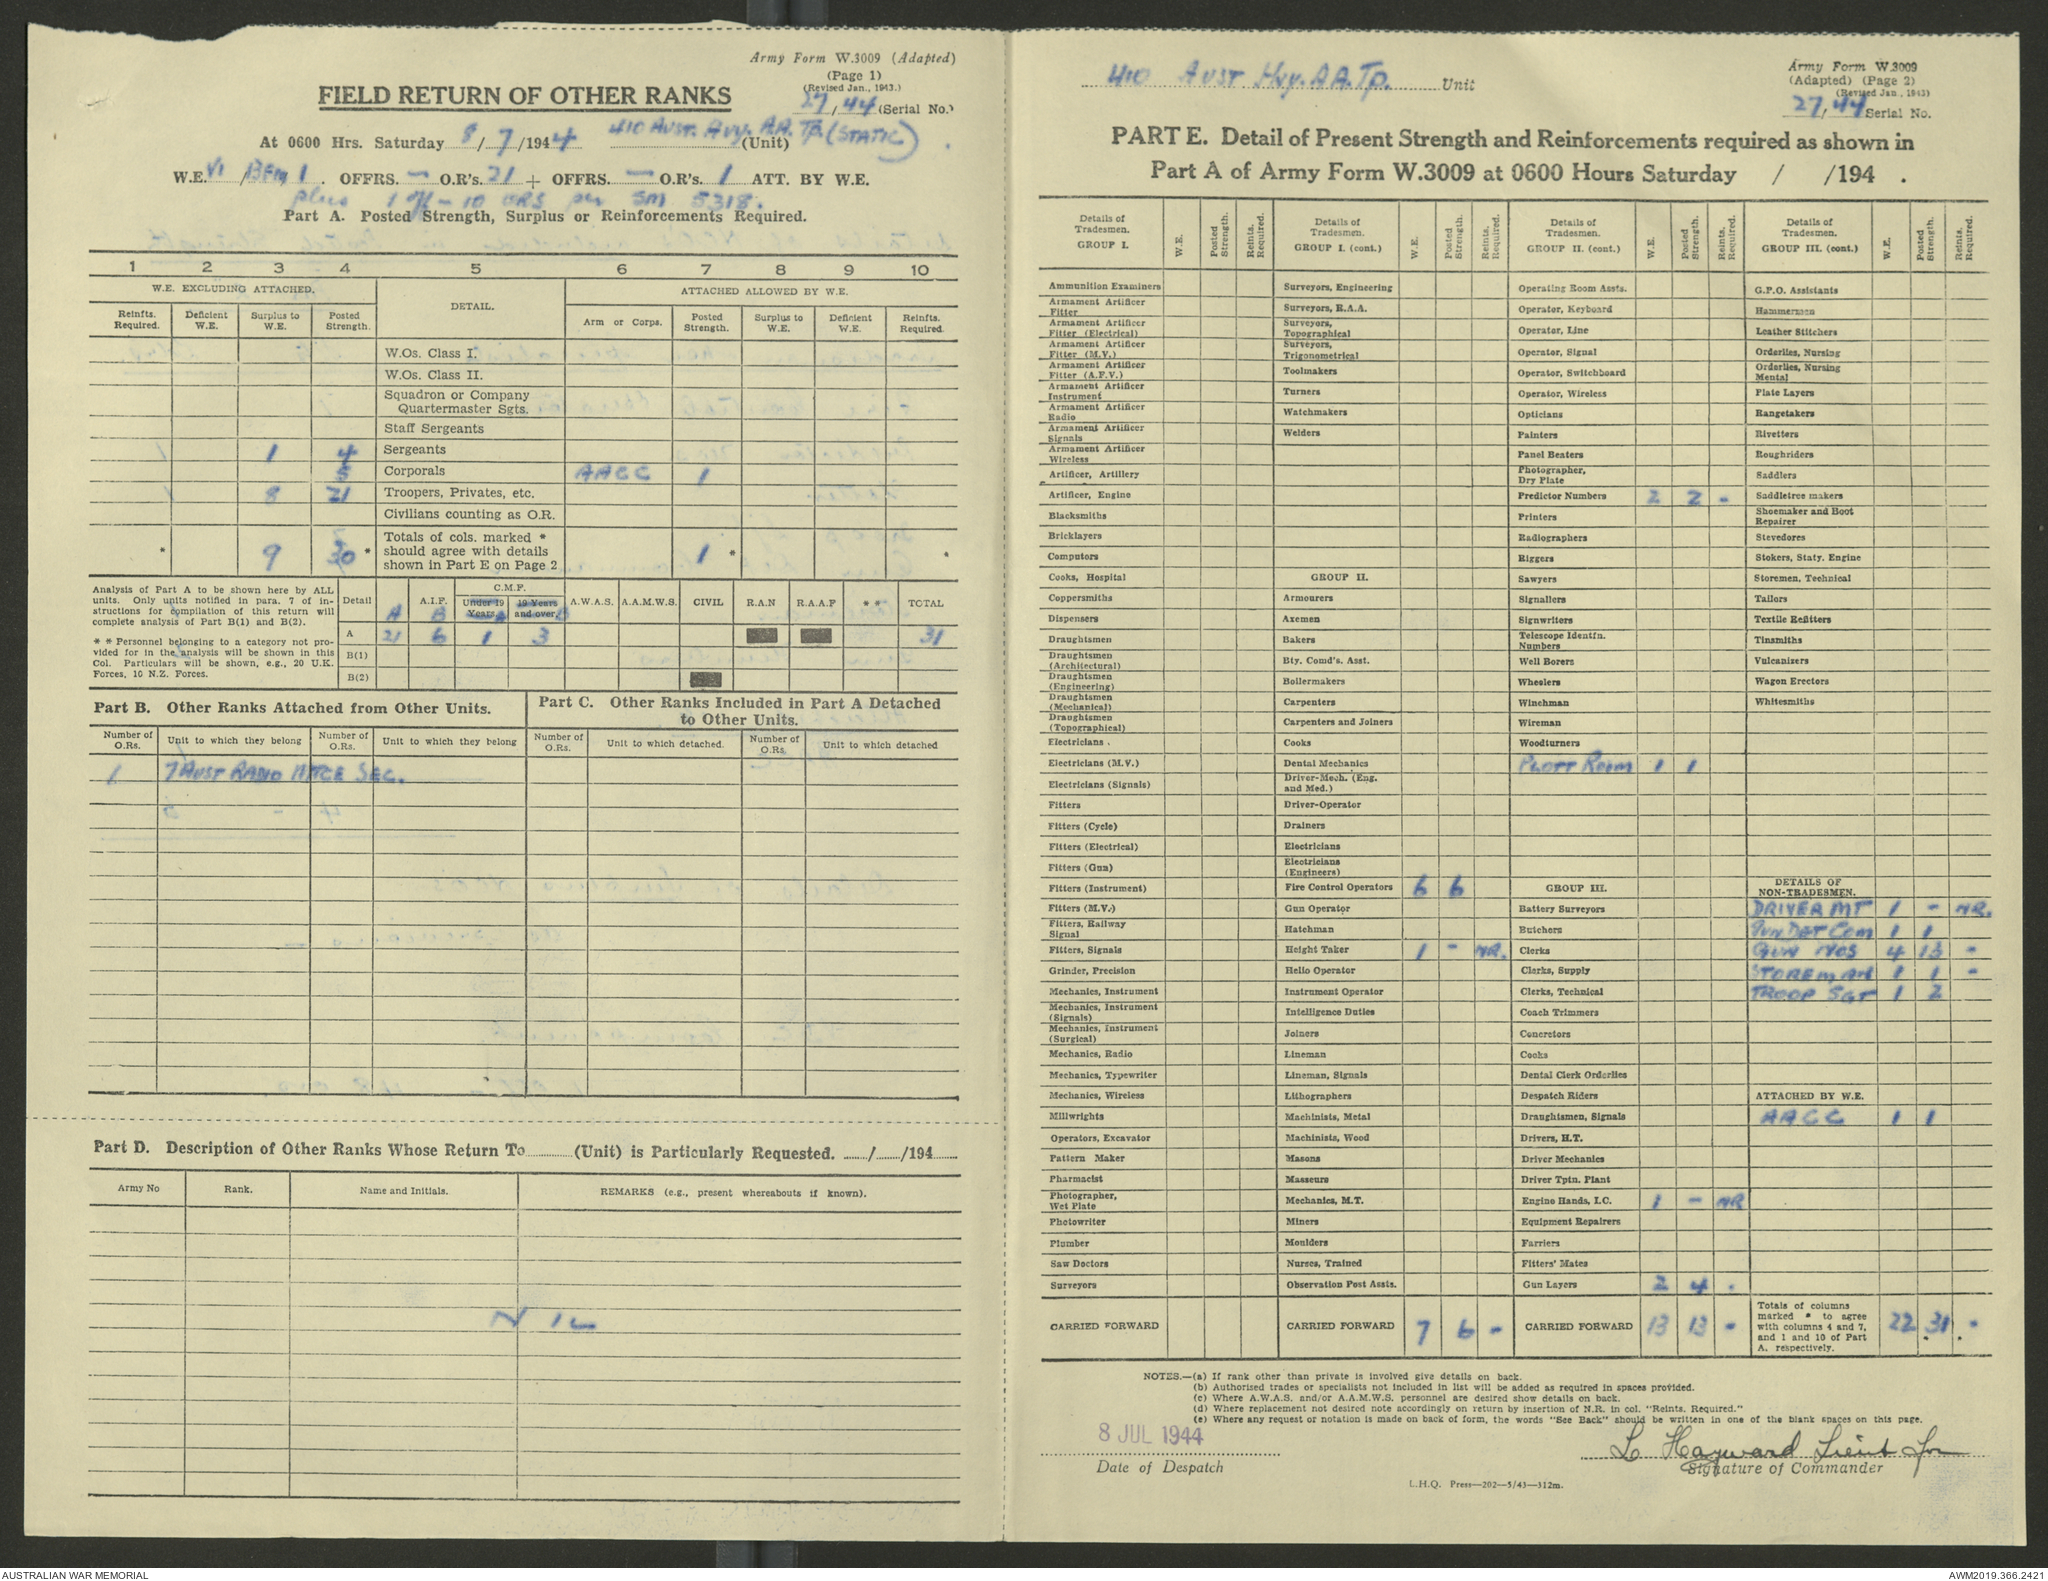 Army Form W.3009 (Adapted)
(Page 1)
(Revised Jan., 1943.)
FIELD RETURN OF OTHER RANKS
27/44 (Serial No.)
At 0600 Hrs. Saturday 8/7/1944 410 AUST. HVY. A.A. TP. (STATIC) (Unit)
W.E. VI / BFM 1. OFFRS. — O.R's. 21 + OFFRS. — O.R's. 1 ATT. BY W.E.
plus 1 off - 10 ORS per SM 5318.
Part A. Posted Strength, Surplus or Reinforcements Required.
1 2 3 4 5 6 7 8 9 10
W.E. EXCLUDING ATTACHED. DETAIL. ATTACHED ALLOWED BY W.E.
Reinfts. Required. Deficient W.E. Surplus to W.E. Posted Strength. Arm or Corps. Posted Strength. Surplus to W.E. Deficient W.E. Reinfts. Required.
W.Os. Class I.
W.Os. Class II.
Squadron or Company Quartermaster Sgts.
Staff Sergeants
1 4 Sergeants
5 Corporals AACC 1
8 21 Troopers, Privates, etc.
Civilians counting as O.R.
* 9 30 * Totals of cols. marked * should agree with details shown in Part E on Page 2 1 * *
Analysis of Part A to be shown here by ALL units. Only units notified in para. 7 of instructions for compilation of this return will complete analysis of Part B(1) and B(2).
* * Personnel belonging to a category not provided for in the analysis will be shown in this Col. Particulars will be shown, e.g., 20 U.K. Forces, 10 N.Z. Forces.
Detail A.I.F. C.M.F. Under 19 Years. 19 Years and over. A.W.A.S. A.A.M.W.S. CIVIL R.A.N R.A.A.F * * TOTAL
A B A B
A 21 6 1 3 31
B(1)
B(2)
Part B. Other Ranks Attached from Other Units.
Part C. Other Ranks Included in Part A Detached to Other Units.
Number of O.Rs. Unit to which they belong Number of O.Rs. Unit to which they belong Number of O.Rs. Unit to which detached. Number of O.Rs. Unit to which detached
1 7 AUST RADIO MTCE SEC.
Part D. Description of Other Ranks Whose Return To (Unit) is Particularly Requested. / /194
Army No Rank. Name and Initials. REMARKS (e.g., present whereabouts if known).
NIL
410 AUST Hvy. A.A. Tp. Unit
Army Form W.3009
(Adapted) (Page 2)
(Revised Jan., 1943)
27/44 Serial No.
PART E. Detail of Present Strength and Reinforcements required as shown in
Part A of Army Form W.3009 at 0600 Hours Saturday / /194 .
Details of Tradesmen. GROUP I. W.E. Posted Strength. Reints. Required.
Ammunition Examiners
Armament Artificer Fitter
Armament Artificer Fitter (Electrical)
Armament Artificer Fitter (M.V.)
Armament Artificer Fitter (A.F.V.)
Armament Artificer Instrument
Armament Artificer Radio
Armament Artificer Signals
Armament Artificer Wireless
Artificer, Artillery
Artificer, Engine
Blacksmiths
Bricklayers
Computors
Cooks, Hospital
Coppersmiths
Dispensers
Draughtsmen
Draughtsmen (Architectural)
Draughtsmen (Engineering)
Draughtsmen (Mechanical)
Draughtsmen (Topographical)
Electricians .
Electricians (M.V.)
Electricians (Signals)
Fitters
Fitters (Cycle)
Fitters (Electrical)
Fitters (Gun)
Fitters (Instrument)
Fitters (M.V.)
Fitters, Railway Signal
Fitters, Signals
Grinder, Precision
Mechanics, Instrument
Mechanics, Instrument (Signals)
Mechanics, Instrument (Surgical)
Mechanics, Radio
Mechanics, Typewriter
Mechanics, Wireless
Millwrights
Operators, Excavator
Pattern Maker
Pharmacist
Photographer, Wet Plate
Photowriter
Plumber
Saw Doctors
Surveyors
CARRIED FORWARD
Details of Tradesmen. GROUP I. (cont.) W.E. Posted Strength. Reints. Required.
Surveyors, Engineering
Surveyors, R.A.A.
Surveyors, Topographical
Surveyors, Trigonometrical
Toolmakers
Turners
Watchmakers
Welders
GROUP II.
Armourers
Axemen
Bakers
Bty. Comd's. Asst.
Boilermakers
Carpenters
Carpenters and Joiners
Cooks
Dental Mechanics
Driver-Mech. (Eng. and Med.)
Driver-Operator
Drainers
Electricians
Electricians (Engineers)
Fire Control Operators 6 6
Gun Operator
Hatchman
Height Taker 1 - NR.
Helio Operator
Instrument Operator
Intelligence Duties
Joiners
Lineman
Lineman, Signals
Lithographers
Machinists, Metal
Machinists, Wood
Masons
Masseurs
Mechanics, M.T.
Miners
Moulders
Nurses, Trained
Observation Post Assts.
CARRIED FORWARD 7 6 -
Details of Tradesmen. GROUP II. (cont.) W.E. Posted Strength. Reints. Required.
Operating Room Assts.
Operator, Keyboard
Operator, Line
Operator, Signal
Operator, Switchboard
Operator, Wireless
Opticians
Painters
Panel Beaters
Photographer, Dry Plate
Predictor Numbers 2 2 -
Printers
Radiographers
Riggers
Sawyers
Signallers
Signwriters
Telescope Identfn. Numbers
Well Borers
Wheelers
Winchman
Wireman
Woodturners
PLOTT ROOM 1 1
GROUP III.
Battery Surveyors
Butchers
Clerks
Clerks, Supply
Clerks, Technical
Coach Trimmers
Concretors
Cooks
Dental Clerk Orderlies
Despatch Riders
Draughtsmen, Signals
Drivers, H.T.
Driver Mechanics
Driver Tptn. Plant
Engine Hands, I.C. 1 - NR
Equipment Repairers
Farriers
Fitters' Mates
Gun Layers 2 4 .
CARRIED FORWARD 13 13 -
Details of Tradesmen. GROUP III. (cont.) W.E. Posted Strength. Reints. Required.
G.P.O. Assistants
Hammermen
Leather Stitchers
Orderlies, Nursing
Orderlies, Nursing Mental
Plate Layers
Rangetakers
Rivetters
Roughriders
Saddlers
Saddletree makers
Shoemaker and Boot Repairer
Stevedores
Stokers, Staty. Engine
Storemen, Technical
Tailors
Textile Refitters
Tinsmiths
Vulcanisers
Wagon Erectors
Whitesmiths
DETAILS OF NON-TRADESMEN.
DRIVER MT 1 - NR.
GUN DET COM 1 1
GUN NOS 4 13 -
STOREMAN 1 1 -
TROOP SGT 1 2
ATTACHED BY W.E.
AACC 1 1
Totals of columns marked * to agree with columns 4 and 7, and 1 and 10 of Part A, respectively. 22 31 -
NOTES.—(a) If rank other than private is involved give details on back.
(b) Authorised trades or specialists not included in list will be added as required in spaces provided.
(c) Where A.W.A.S. and/or A.A.M.W.S. personnel are desired show details on back.
(d) Where replacement not desired note accordingly on return by insertion of N.R. in col. "Reints. Required."
(e) Where any request or notation is made on back of form, the words "See Back" should be written in one of the blank spaces on this page.
8 JUL 1944
Date of Despatch
L Hayward Lieut for
Signature of Commander
L.H.Q. Press—202—5/43—312m.
AUSTRALIAN WAR MEMORIAL
AWM2019.366.2421